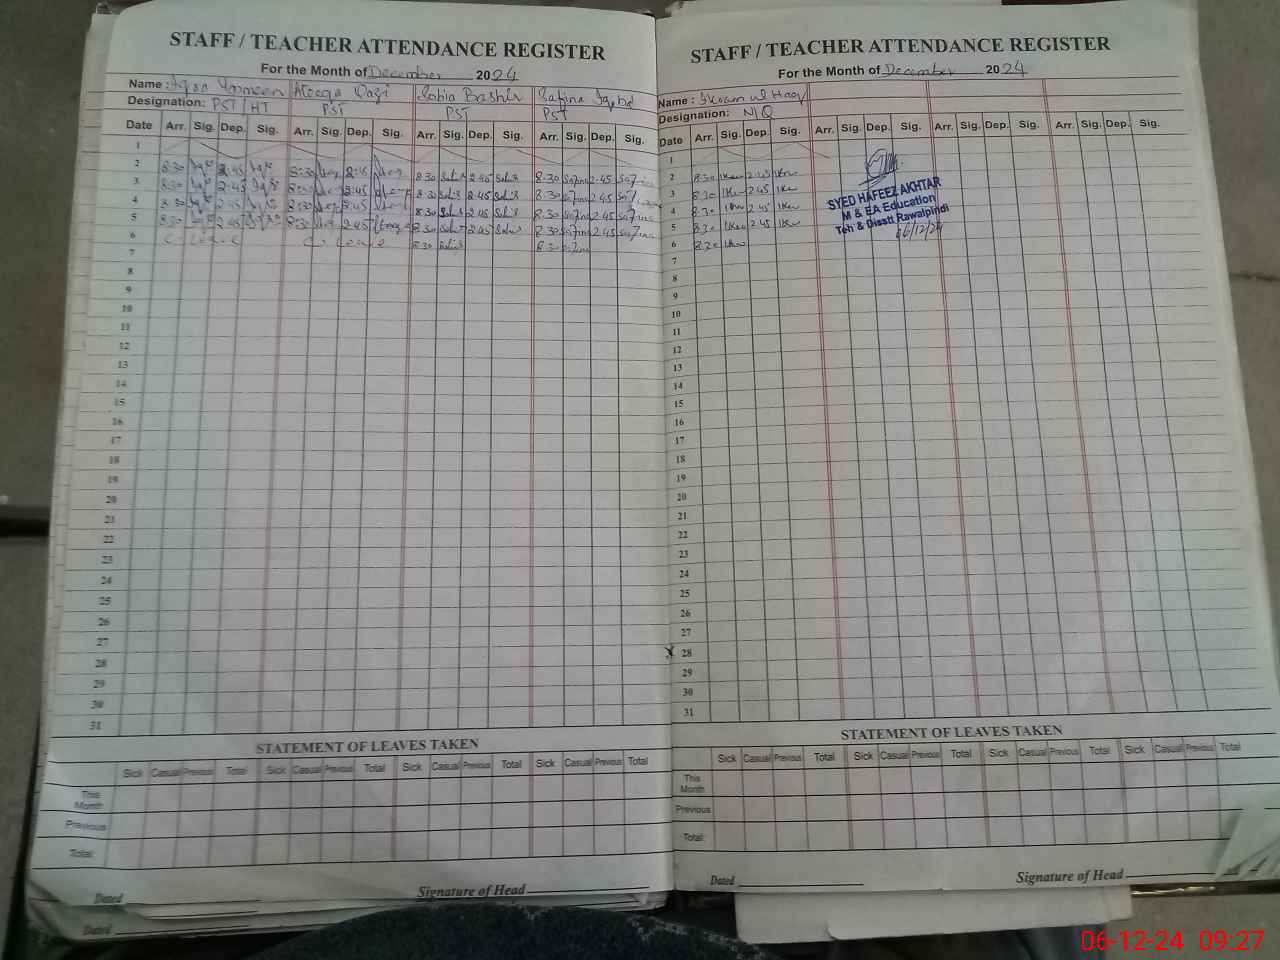 STAFF / TEACHER ATTENDANCE REGISTER
For the Month of December 2024
Name : Iqra Yasmeen Ateeqa Qazi Sobia Bashir Safina Iqbal
Designation: PST / HT PST PST PST
Date Arr. Sig. Dep. Sig. Arr. Sig. Dep. Sig. Arr. Sig. Dep. Sig. Arr. Sig. Dep. Sig.
1
2 8:30 2:45 8:30 2:45 8:30 2:45 8:30 2:45
3 8:30 2:45 8:30 2:45 8:30 2:45 8:30 2:45
4 8:30 2:45 8:30 2:45 8:30 2:45 8:30 2:45
5 8:30 2:45 8:30 2:45 8:30 2:45 8:30 2:45
6 C. Leave C. Leave 8:30 8:30
7
8
9
10
11
12
13
14
15
16
17
18
19
20
21
22
23
24
25
26
27
28
29
30
31
STATEMENT OF LEAVES TAKEN
Sick Casual Previous Total Sick Casual Previous Total Sick Casual Previous Total Sick Casual Previous Total
This Month
Previous
Total
Dated Signature of Head
Dated
STAFF / TEACHER ATTENDANCE REGISTER
For the Month of December 2024
Name : Ikram ul Haq
Designation: N/Q
Date Arr. Sig. Dep. Sig. Arr. Sig. Dep. Sig. Arr. Sig. Dep. Sig. Arr. Sig. Dep. Sig.
1
2 8:30 2:45
3 8:30 2:45
4 8:30 2:45
5 8:30 2:45
6 8:30
7
8
9
10
11
12
13
14
15
16
17
18
19
20
21
22
23
24
25
26
27
28
29
30
31
SYED HAFEEZ AKHTAR
M & EA Education
Teh & Disstt Rawalpindi
06/12/24
STATEMENT OF LEAVES TAKEN
Sick Casual Previous Total Sick Casual Previous Total Sick Casual Previous Total Sick Casual Previous Total
This Month
Previous
Total
Dated Signature of Head
06-12-24 09:27